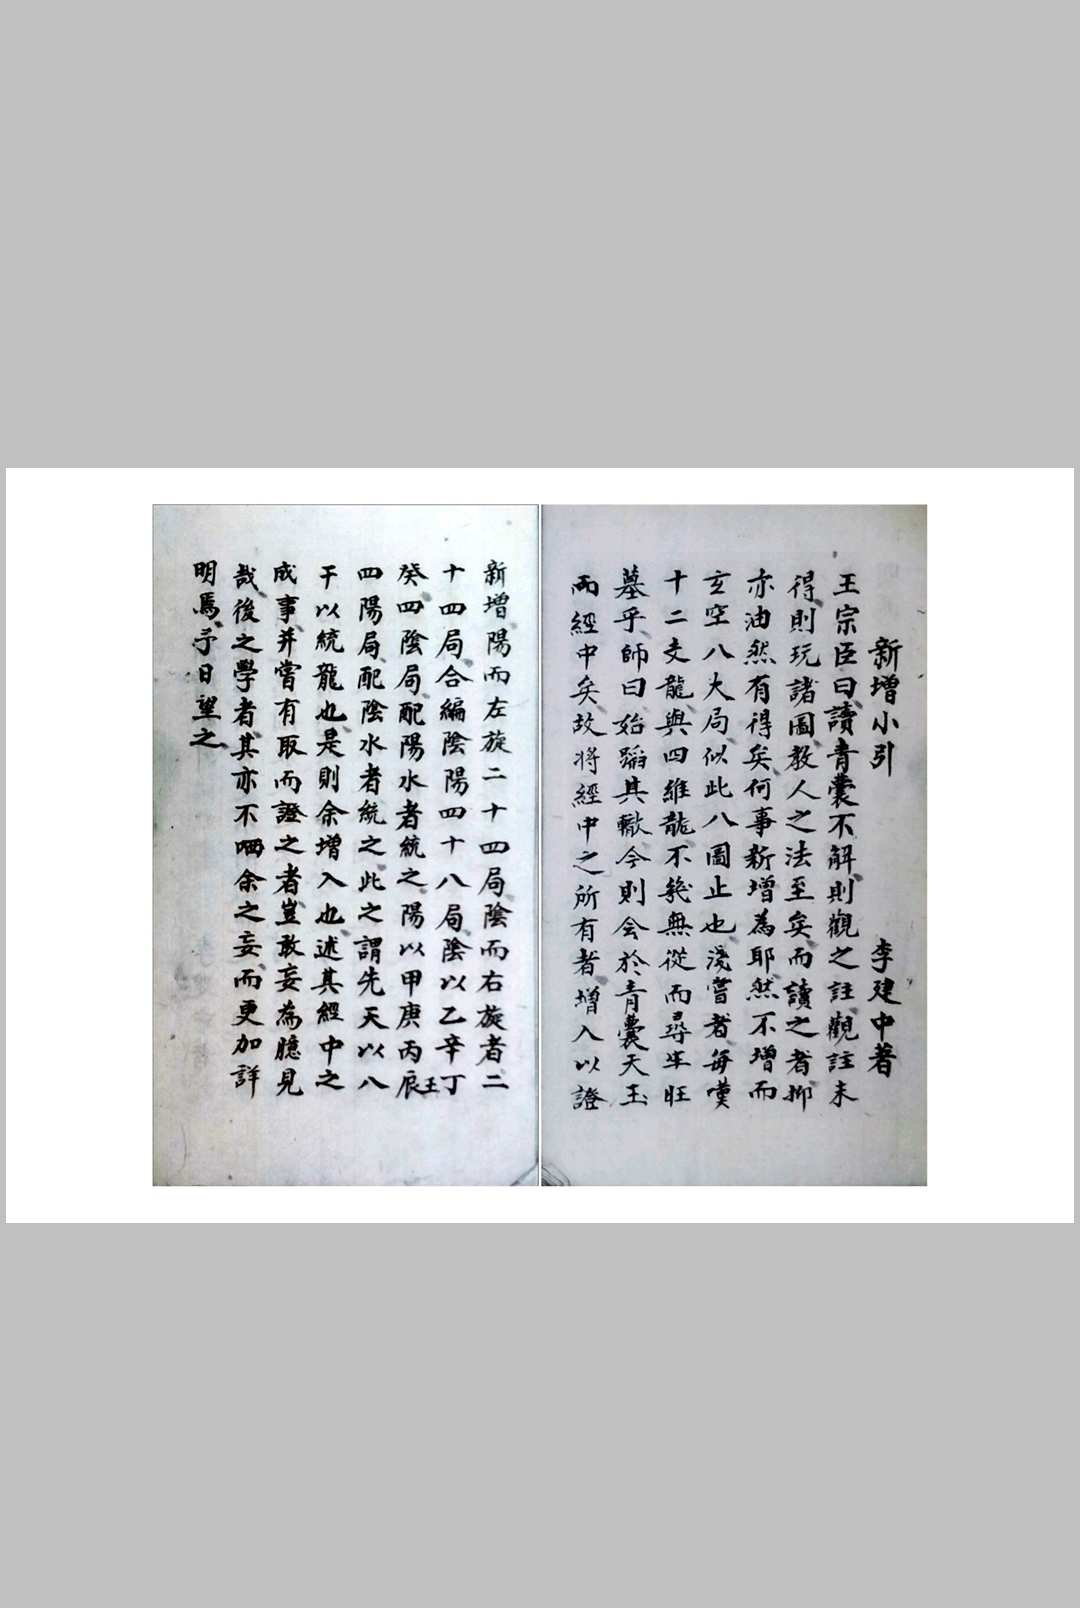 新增小引
李建中著
王宗臣曰讀青囊不解則觀之註觀註未
得則玩諸圖教人之法至矣而讀之者抑
亦油然有得矣何事新增為耶然不增而
玄空八大局似此八圖止也淺嘗者每嘆
十二支龍與四維龍不幾無從而尋生旺
墓乎師曰始蹈其轍今則会於青囊天玉
兩經中矣故将經中之所有者增入以證
新增陽而左旋二十四局陰而右旋者二
十四局合編陰陽四十八局陰以乙辛丁
癸四陰局配陽水者統之陽以甲庚丙壬辰
四陽局配陰水者統之此之謂先天以八
干以統龍也是則余增入也述其經中之
成事并嘗有取而證之者豈敢妄為臆見
哉後之學者其亦不哂余之妄而更加詳
明焉予日望之